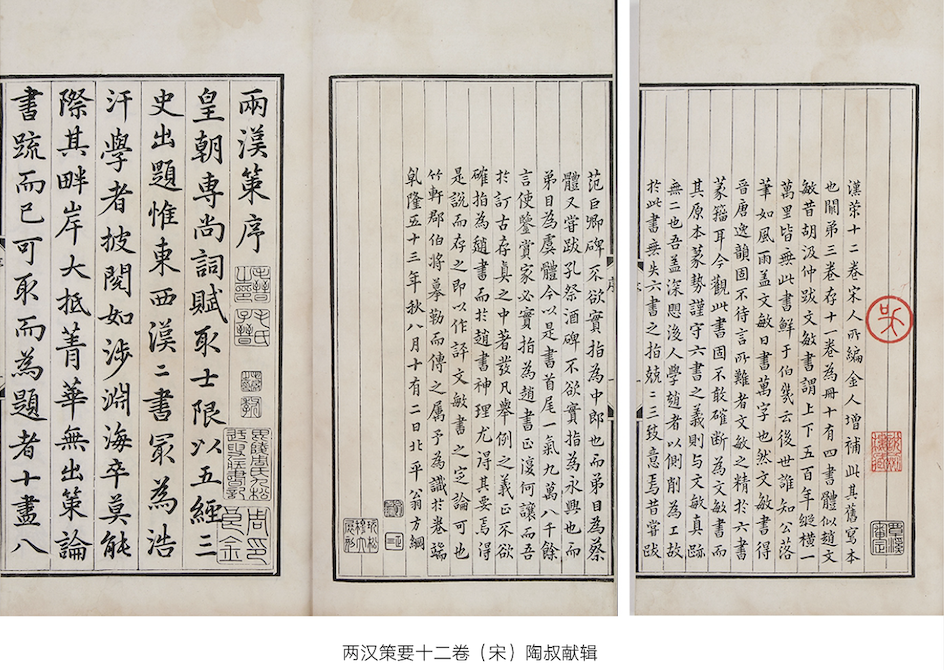 漢策十二卷宋人所編金人增補此其舊寫本
也闕弟三卷存十一卷為冊十有四書體似趙文
敏昔胡汲仲跋文敏書謂上下五百年縱橫一
萬里皆無此書鮮于伯幾云後世誰知公落
筆如風雨盖文敏日書萬字也然文敏書得
晉唐逸韻固不待言所難者文敏之精於六書
篆籀耳今觀此書固不敢確斷為文敏書而
其原本篆勢謹守六書之義則与文敏真跡
無二也吾盖深慨後人學趙者以側削為工故
於此書無失六書之指兢二三致意焉昔嘗跋
覃溪審定
范巨卿碑不欲實指為中郎也而弟目為蔡
體又嘗跋孔祭酒碑不欲實指為永興也而
弟目為虞體今以是書首尾一氣九萬八千餘
言使鑒賞家必實指為趙書正復何讓而吾
於訂古存真之中著發凡舉例之義正不欲
確指為趙書而於趙書神理尤得其要焉得
是說而存之即以作評文敏書之定論可也
竹軒郡伯將摹勒而傳之屬予為識於卷端
乾隆五十三年秋八月十有二日北平翁方綱
兩漢策序
毛晉之印
毛氏子晉
毘陵周氏九松迂叟藏書記
周良金印
皇朝專尚詞賦取士限以五經三
史出題惟東西漢二書冣為浩
汗學者披閱如涉淵海卒莫能
際其畔岸大抵菁華無出策論
書疏而已可取而為題者十盡八
两汉策要十二卷（宋）陶叔献辑